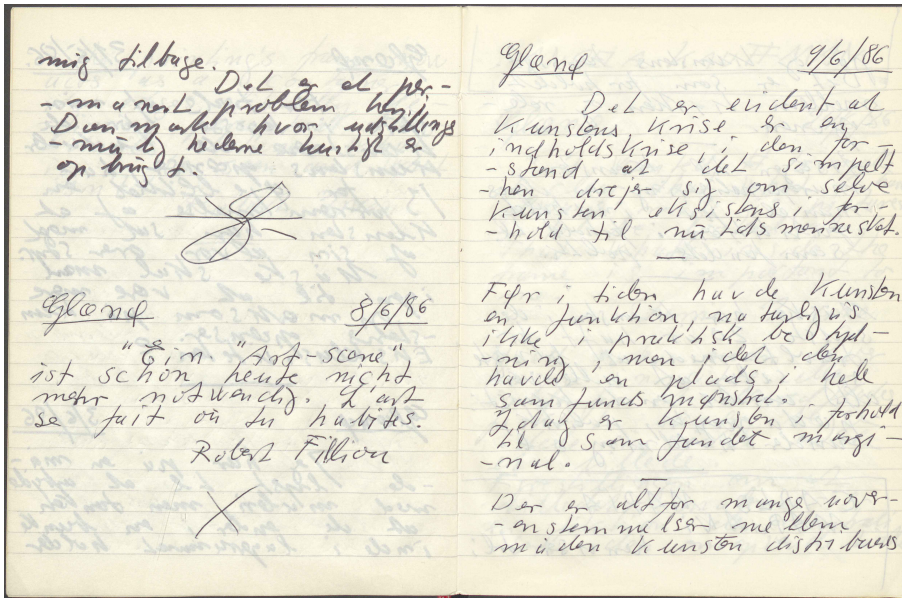 mig tilbage.
Det er et per-
-manent problem her i
Danmark hvor udstillings
-mulighederne hurtigt er
opbrugt.
Gland 8/6/86
"Ein "Art-scene"
ist schon heute nicht
mehr notwendig. L'art
se fait où tu habites.
Robert Fillion
Gland 9/6/86
Det er evident at
Kunstens Krise er en
indholdskrise, i den for-
-stand at det simpelt
-hen drejer sig om selve
Kunstens eksistens i for-
-hold til nutidsmennesket.
—
Før i tiden havde Kunsten
en funktion, naturligvis
ikke i praktisk betyd-
-ning, men idet den
havde en plads i hele
samfundsmønstret.
Idag er Kunsten i forhold
til samfundet margi-
-nal.
—
Der er alt for mange uover-
-enstemmelser mellem
måden Kunsten distribueres